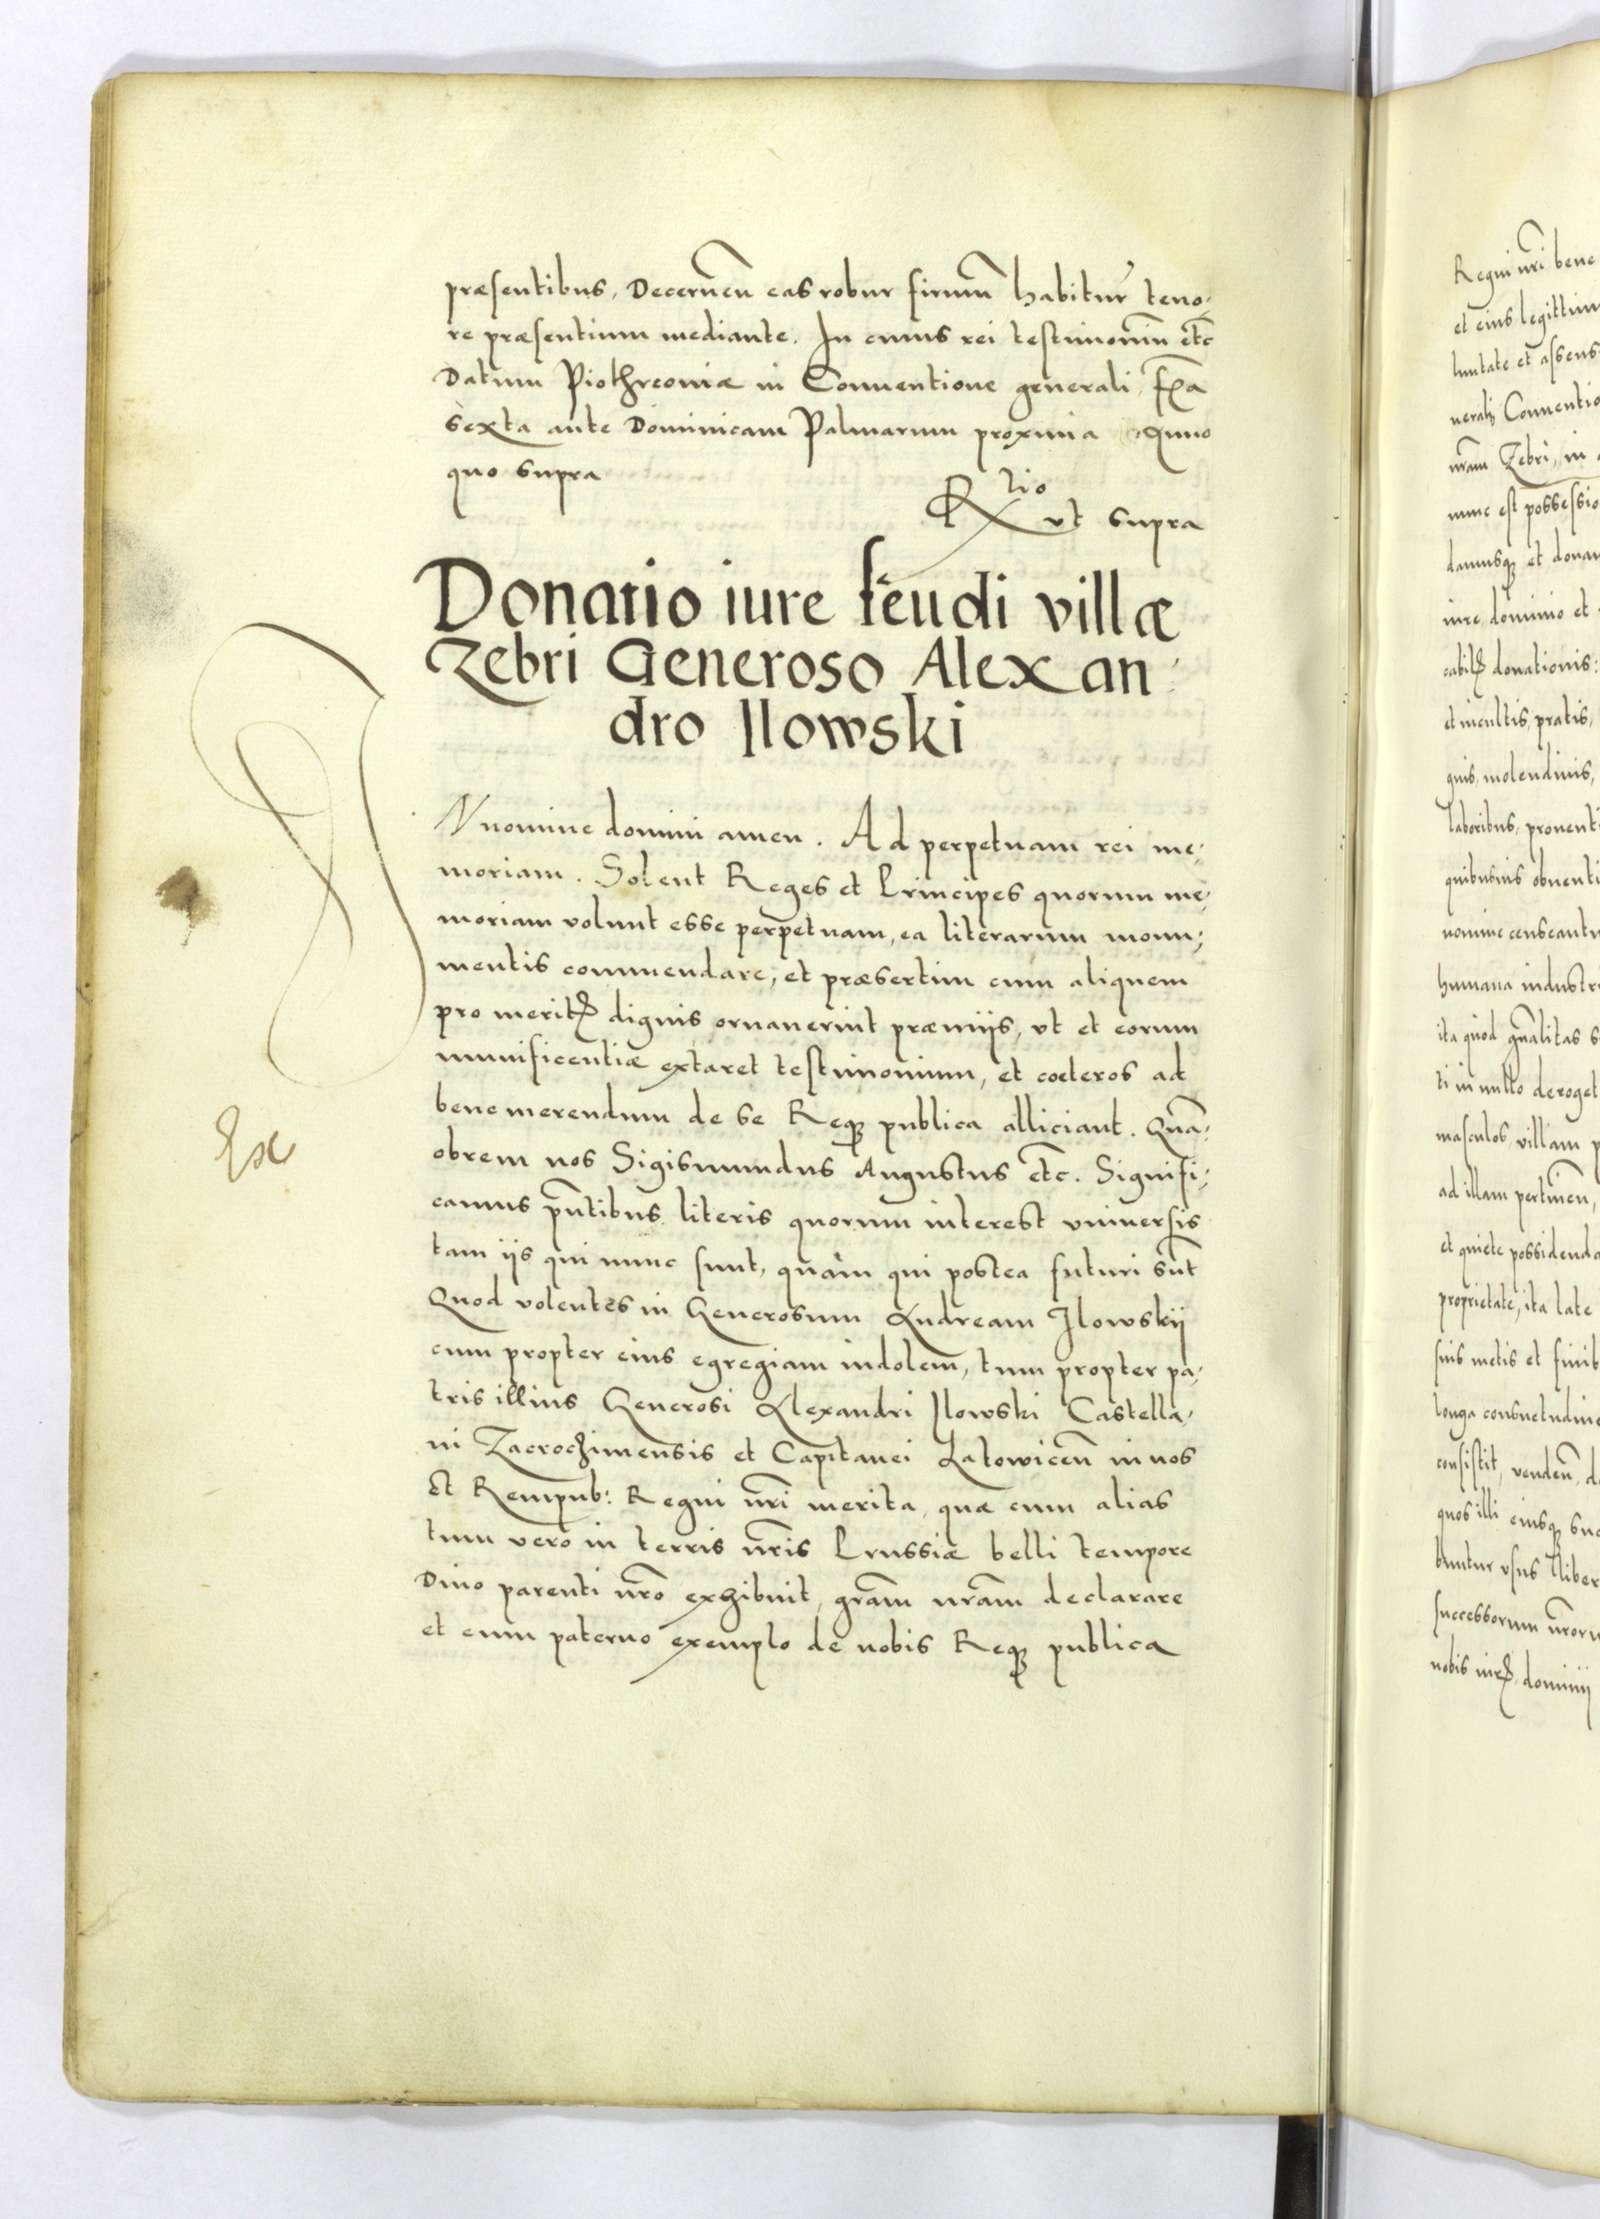 præsentibus, Decernen̄ eas robur firmū habitur̄ teno-
re præsentium mediante. In cuius rei testimoniū etc̄
Datum Piothrconiæ in Conuentione generali, fr̄a
sexta ante Dominicam Palmarum proxima Anno
quo supra
Rlio
vt supra
Donatio iure feudi villæ
Zebri Generoso Alexan-
dro Ilowski
IN nomine domini amen. Ad perpetuam rei me-
moriam. Solent Reges et Principes quorum me-
moriam volunt esse perpetuam, ea literarum monu-
mentis commendare, et præsertim cum aliquem
pro meritꝭ dignis ornauerint præmiis, vt et eorum
munificentiæ extaret testimonium, et cœteros ad
bene merendum de se Reqꝫ publica alliciant. Quā-
obrem nos Sigismundus Augustus etc̄. Signifi-
camus pn̄tibus literis quorum interest vniuersis
tam iis qui nunc sunt, quàm qui postea futuri sūt
Quod volentes in Generosum Andream Ilowskij
cum propter eius egregiam indolem, tum propter pa-
tris illius Generosi Alexandri Ilowski Castella-
ni Zacrochimensis et Capitanei Latowicen̄ in nos
Et Rempub: Regni nr̄i merita, quæ cum alias
tum vero in terris nr̄is Prussiæ belli tempore
Diuo parenti nr̄o exhibuit, gr̄am nr̄am declarare
et eum paterno exemplo de nobis Reqꝫ publica
Ex
Regni nr̄i bene
et eius legittim
luntate et assens
nerali Conuentio
nr̄am Zebri, in
nunc est possessio
damusqꝫ et donam
iure, dominio et
cabilꝭ donationis:
et incultis, pratis,
quis, molendinis,
laboribus, prouenti
quibusuis obuenti
nomine censeantu
humana industri
ita quod gn̄alitas s
ti in nullo deroget
masculos, villam p
ad illam pertinen̄,
et quiete possidenda
proprietate, ita late
suis metis et finib
longa consuetudine
consistit, venden̄, d
quos illi eiusqꝫ suc
buntur vsus liber
successorum nr̄oru
nobis iurꝭ, dominij